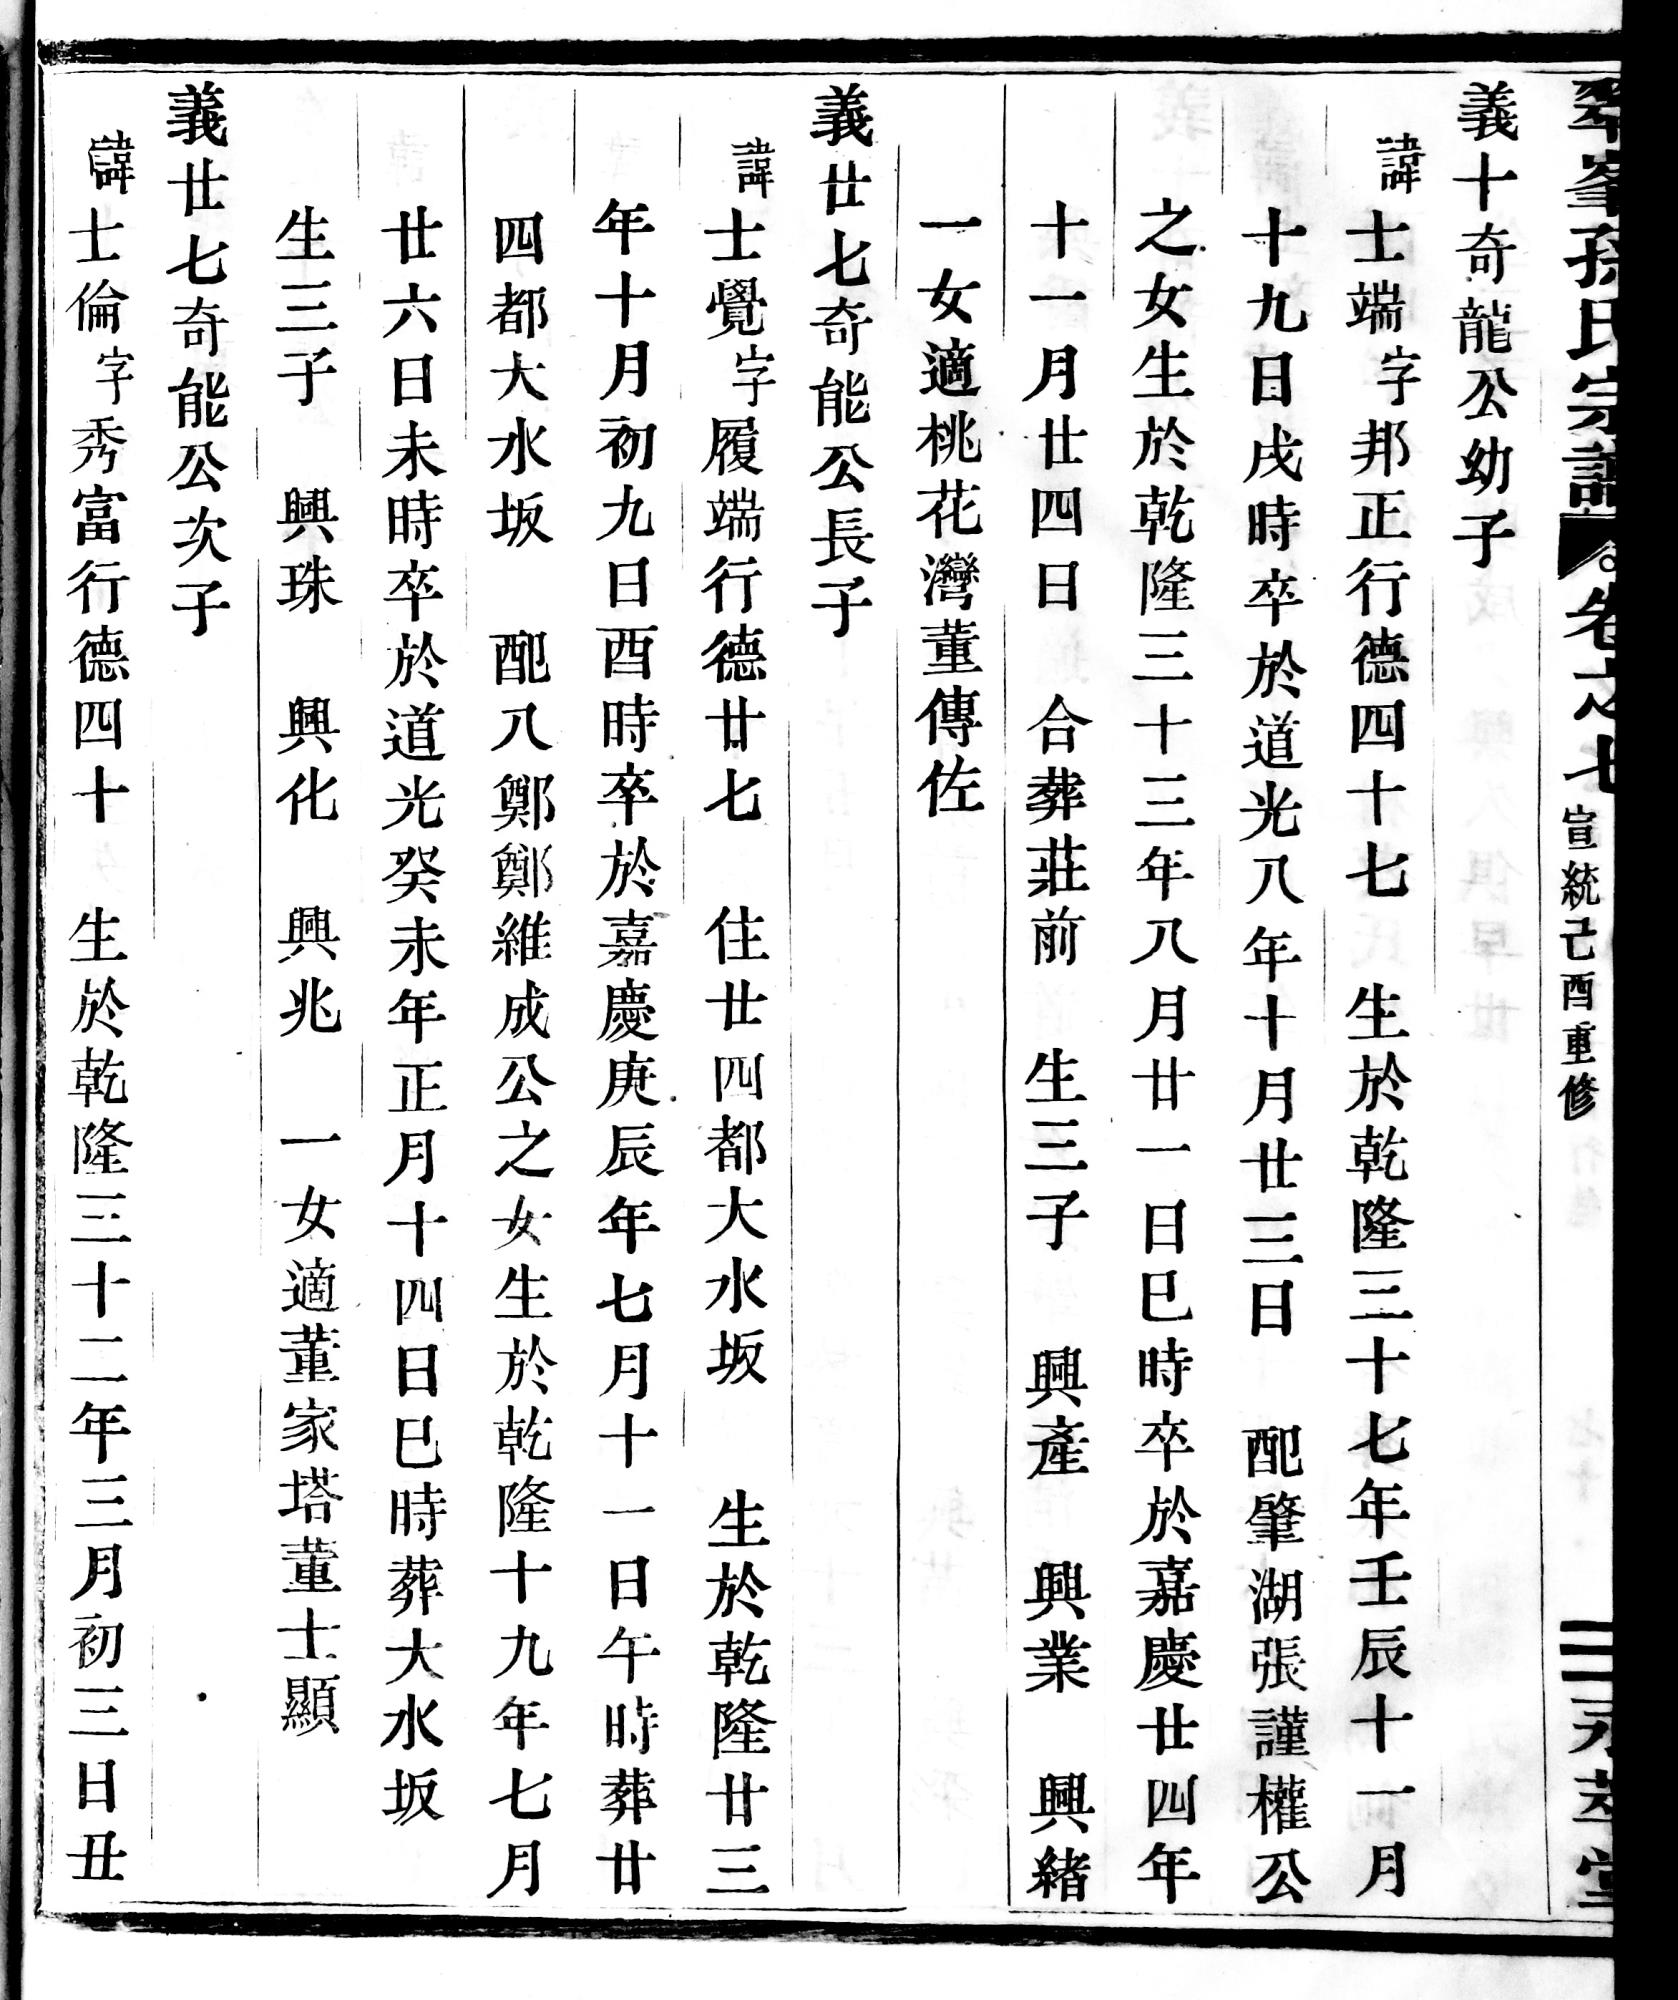 翠峯孫氏宗譜 卷之七 宣統己酉重修 永萃堂
義十奇龍公幼子
諱士端字邦正行德四十七 生於乾隆三十七年壬辰十一月
十九日戌時卒於道光八年十月廿三日 配肇湖張謹權公
之女生於乾隆三十三年八月廿一日巳時卒於嘉慶廿四年
十一月廿四日 合葬莊前 生三子 興產 興業 興緒
一女適桃花灣董傳佐
義廿七奇能公長子
諱士覺字履端行德廿七 住廿四都大水坂 生於乾隆廿三
年十月初九日酉時卒於嘉慶庚辰年七月十一日午時葬廿
四都大水坂 配八鄭鄭維成公之女生於乾隆十九年七月
廿六日未時卒於道光癸未年正月十四日巳時葬大水坂
生三子 興珠 興化 興兆 一女適董家塔董士顯
義廿七奇能公次子
諱士倫字秀富行德四十 生於乾隆三十二年三月初三日丑